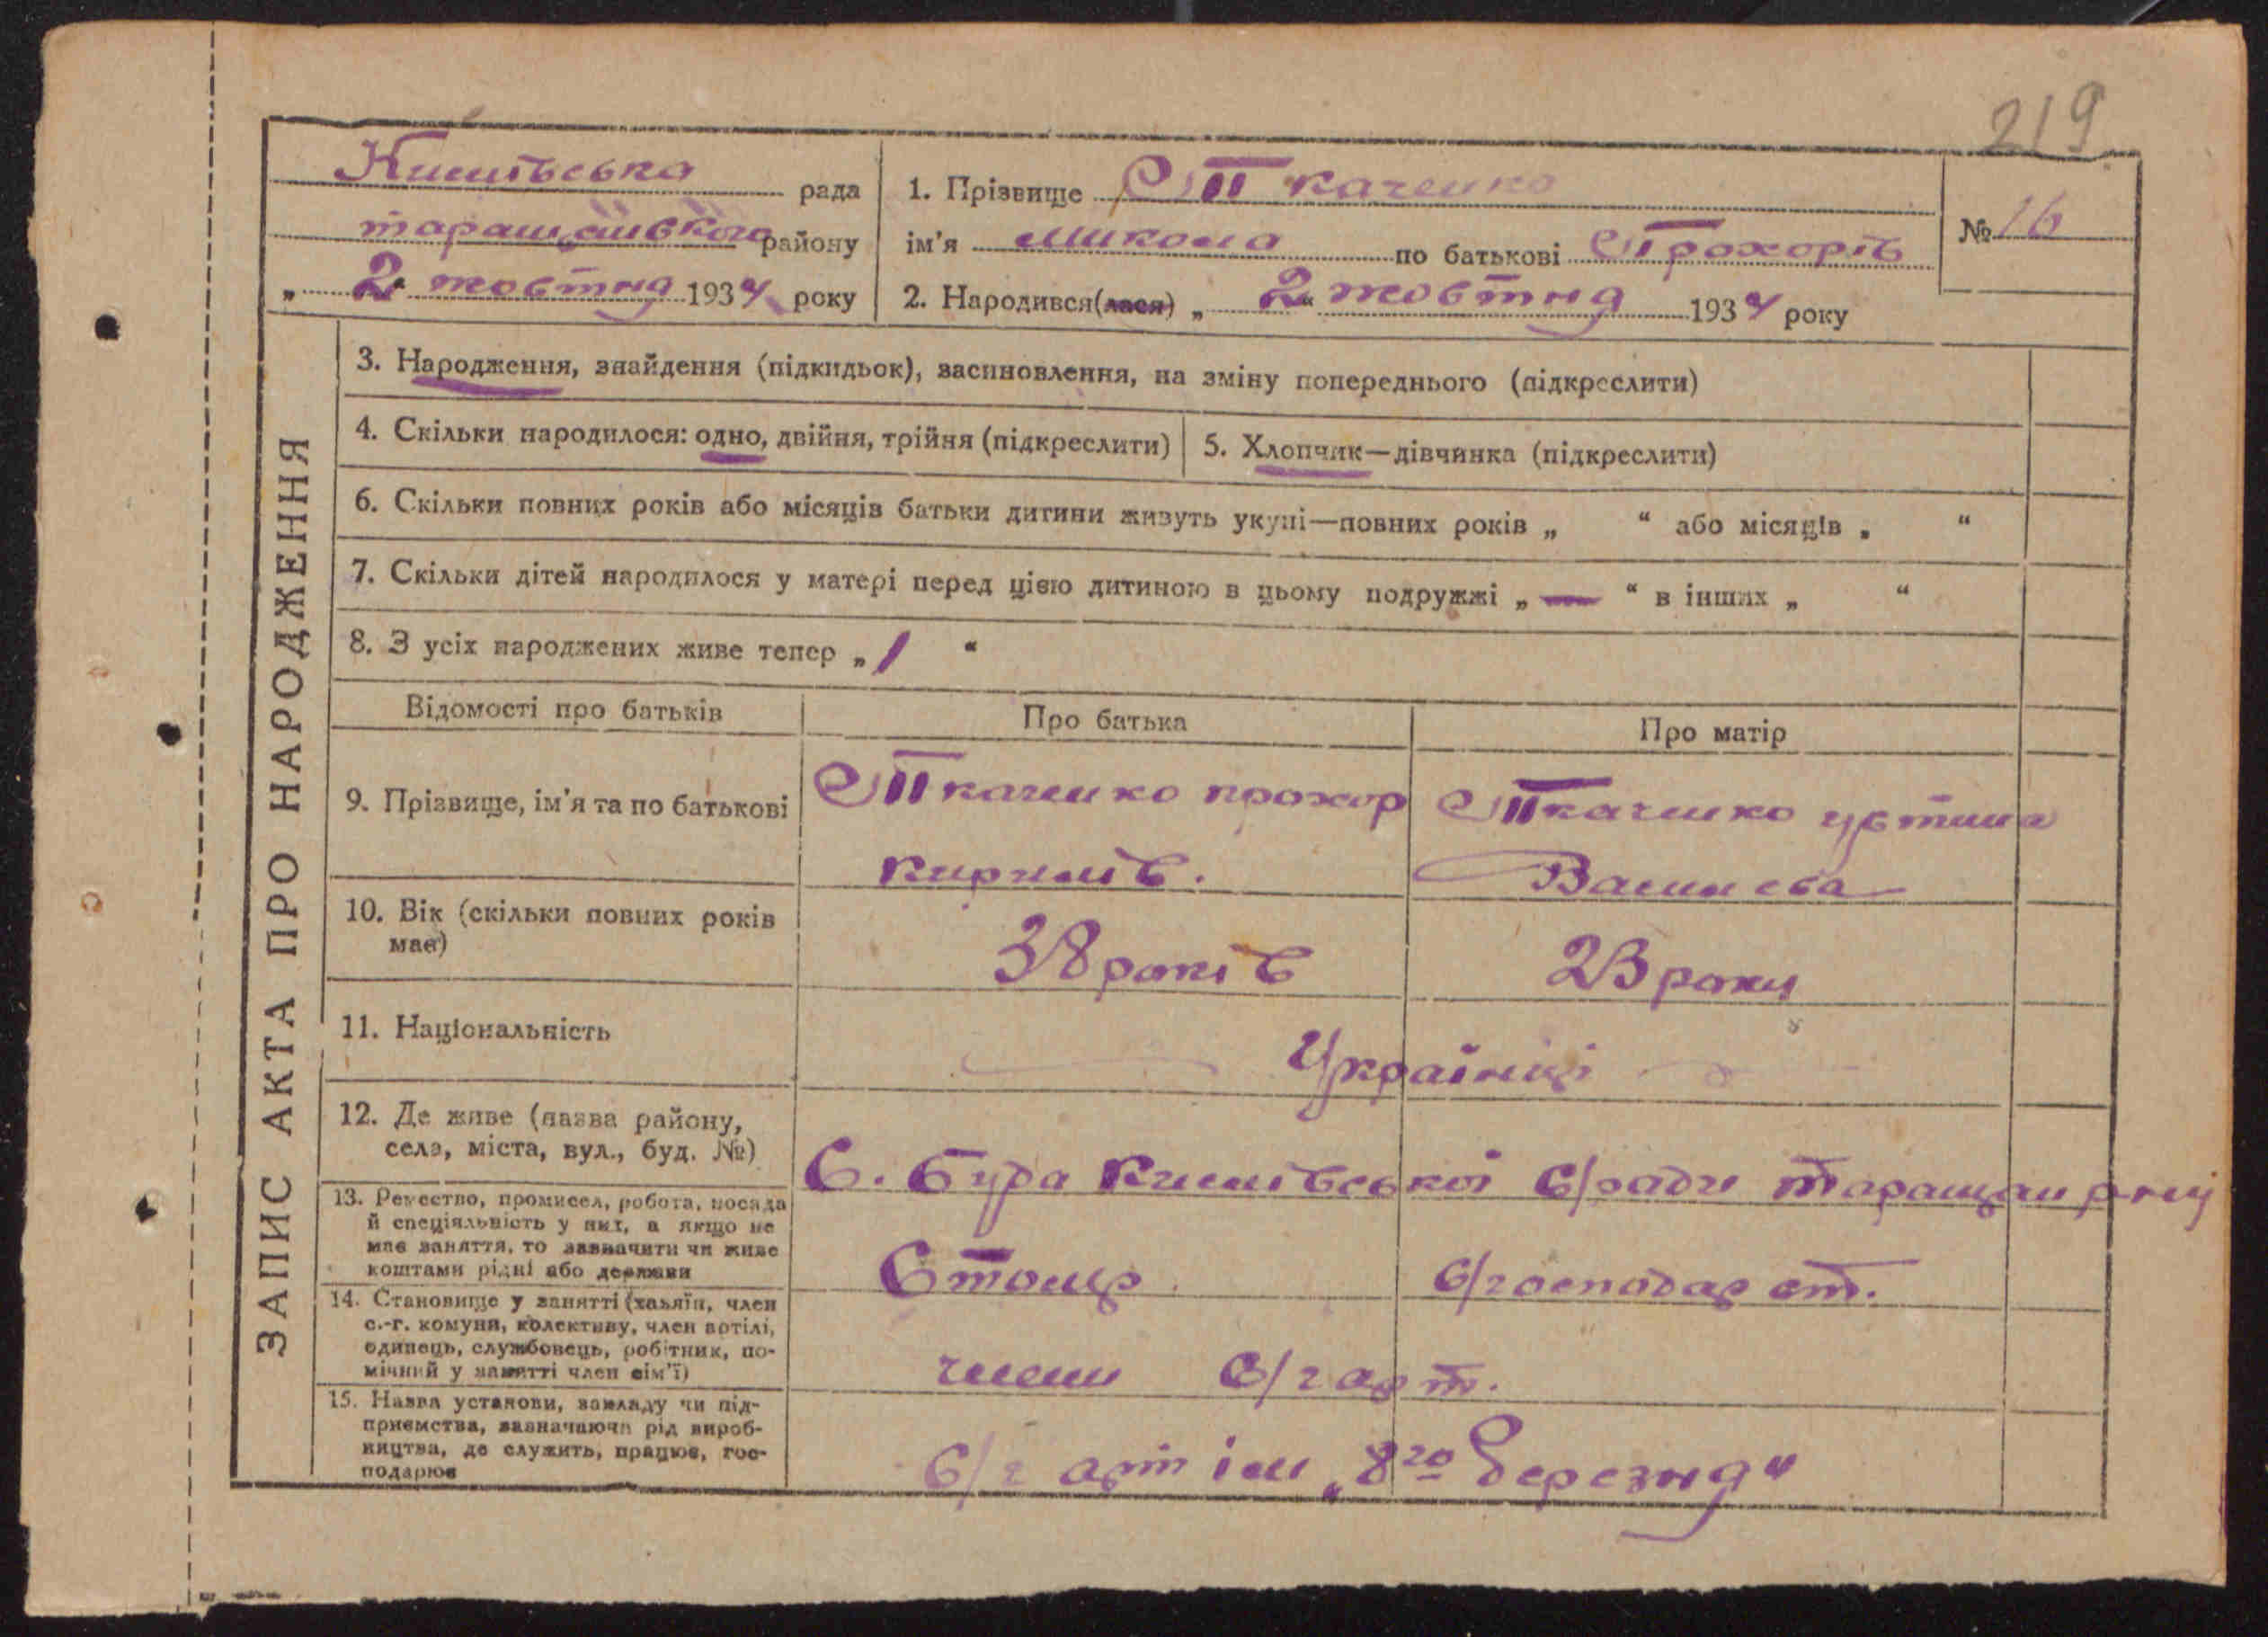 219
Кишівська рада
таращанського району
„ 2 “ жовтня 1934 року
1. Прізвище Ткаченко
ім'я Микола по батькові Прохорів
№ 16
2. Народився(лася) „ 2 “ жовтня 1934 року
ЗАПИС АКТА ПРО НАРОДЖЕННЯ
3. Народження, знайдення (підкидьок), засиновлення, на зміну попереднього (підкреслити)
4. Скільки народилося: одно, двійня, трійня (підкреслити)
5. Хлопчик—дівчинка (підкреслити)
6. Скільки повних років або місяців батьки дитини живуть укупі—повних років „ “ або місяців „ “
7. Скільки дітей народилося у матері перед цією дитиною в цьому подружжі „ — “ в інших „ “
8. З усіх народжених живе тепер „ 1 “
Відомості про батьків
Про батька
Про матір
9. Прізвище, ім'я та по батькові
Ткаченко прохор
кирилів.
Ткаченко устина
10. Вік (скільки повних років
має)
38 років
23 роки
11. Національність
Українці
12. Де живе (назва району,
села, міста, вул., буд. №)
С. Бура Кишівської С/ради таращан р-ну
13. Ремество, промисел, робота, посада
й спеціяльність у них, а якщо не
має заняття, то зазначити чи живе
коштами рідні або держави
Столяр
С/господар ст.
14. Становище у занятті (хазяїн, член
с.-г. комуни, колективу, член артілі,
одинець, службовець, робітник, по-
мічний у занятті член сім'ї)
члени С/г арт.
15. Назва установи, закладу чи під-
приємства, зазначаючи рід вироб-
ництва, де служить, працює, гос-
подарює
С/г арт ім „8го березня“